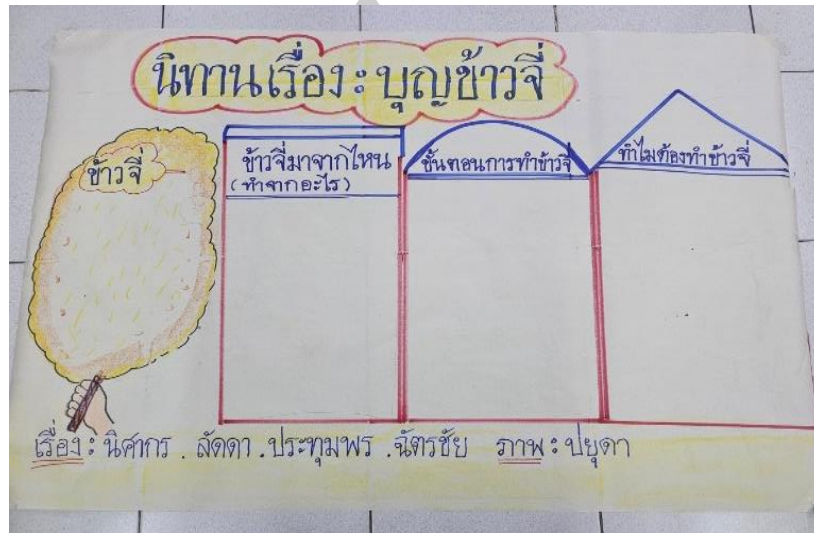 นิทานเรื่อง : บุญข้าวจี่
ข้าวจี่
ข้าวจี่มาจากไหน
(ทำจากอะไร)
ขั้นตอนการทำข้าวจี่
ทำไมต้องทำข้าวจี่
เรื่อง : นิศากร . ลัดดา . ประทุมพร . ฉัตรชัย ภาพ : ปยุดา